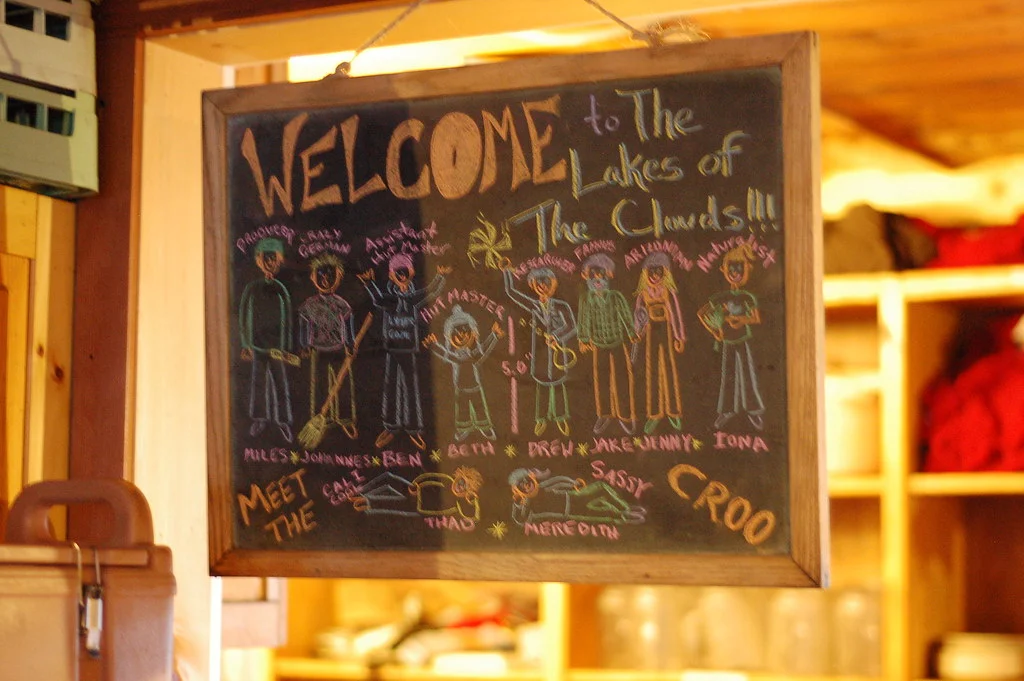 WELCOME to The
Lakes of
The Clouds!!!
PRODUCER CRAZY GERMAN Assistant Hut Master HUT MASTER RESEARCHER FARMER ARIZONAN Naturalist
5.0"
MILES * JOHANNES * BEN * BETH * DREW * JAKE * JENNY * IONA
MEET THE CALI THAD * MEREDITH SASSY CROO